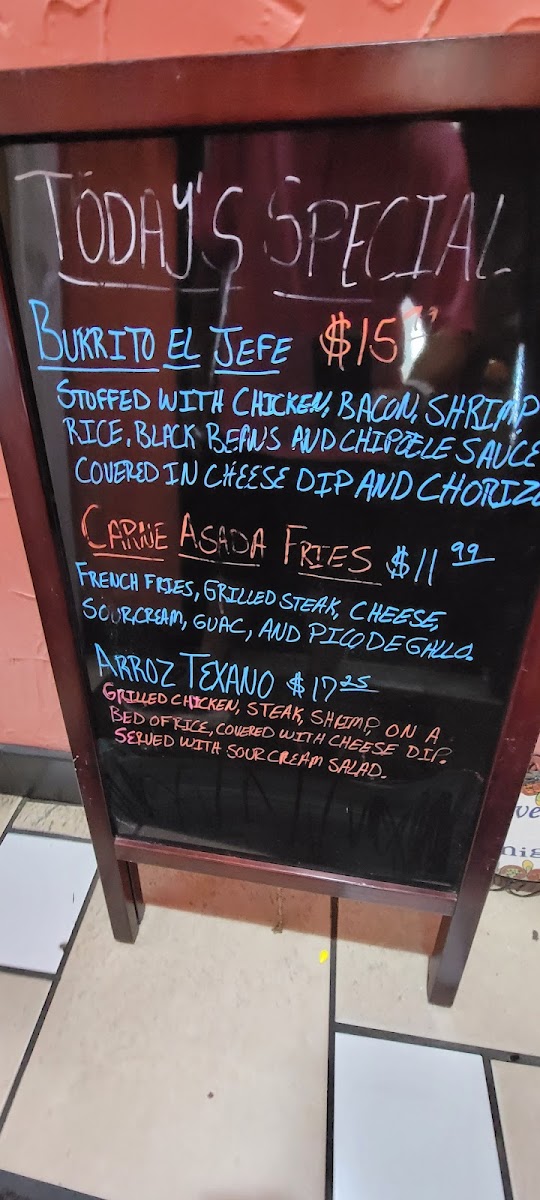 TODAY'S SPECIAL
BURRITO EL JEFE $15
STUFFED WITH CHICKEN, BACON, SHRIMP
RICE, BLACK BEANS AND CHIPOTLE SAUCE
COVERED IN CHEESE DIP AND CHORIZO
CARNE ASADA FRIES $11 99
FRENCH FRIES, GRILLED STEAK, CHEESE,
SOUR CREAM, GUAC, AND PICO DE GALLO.
ARROZ TEXANO $17 25
GRILLED CHICKEN, STEAK, SHRIMP, ON A
BED OF RICE, COVERED WITH CHEESE DIP.
SERVED WITH SOUR CREAM SALAD.